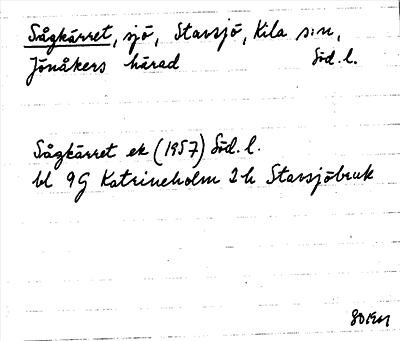 Sågkärret, sjö, Stavsjö, Kila s:n,
Jönåkers härad Söd. l.
Sågkärret ek (1957) Söd. l.
bl 9G Katrineholm 2h Stavsjöbruk